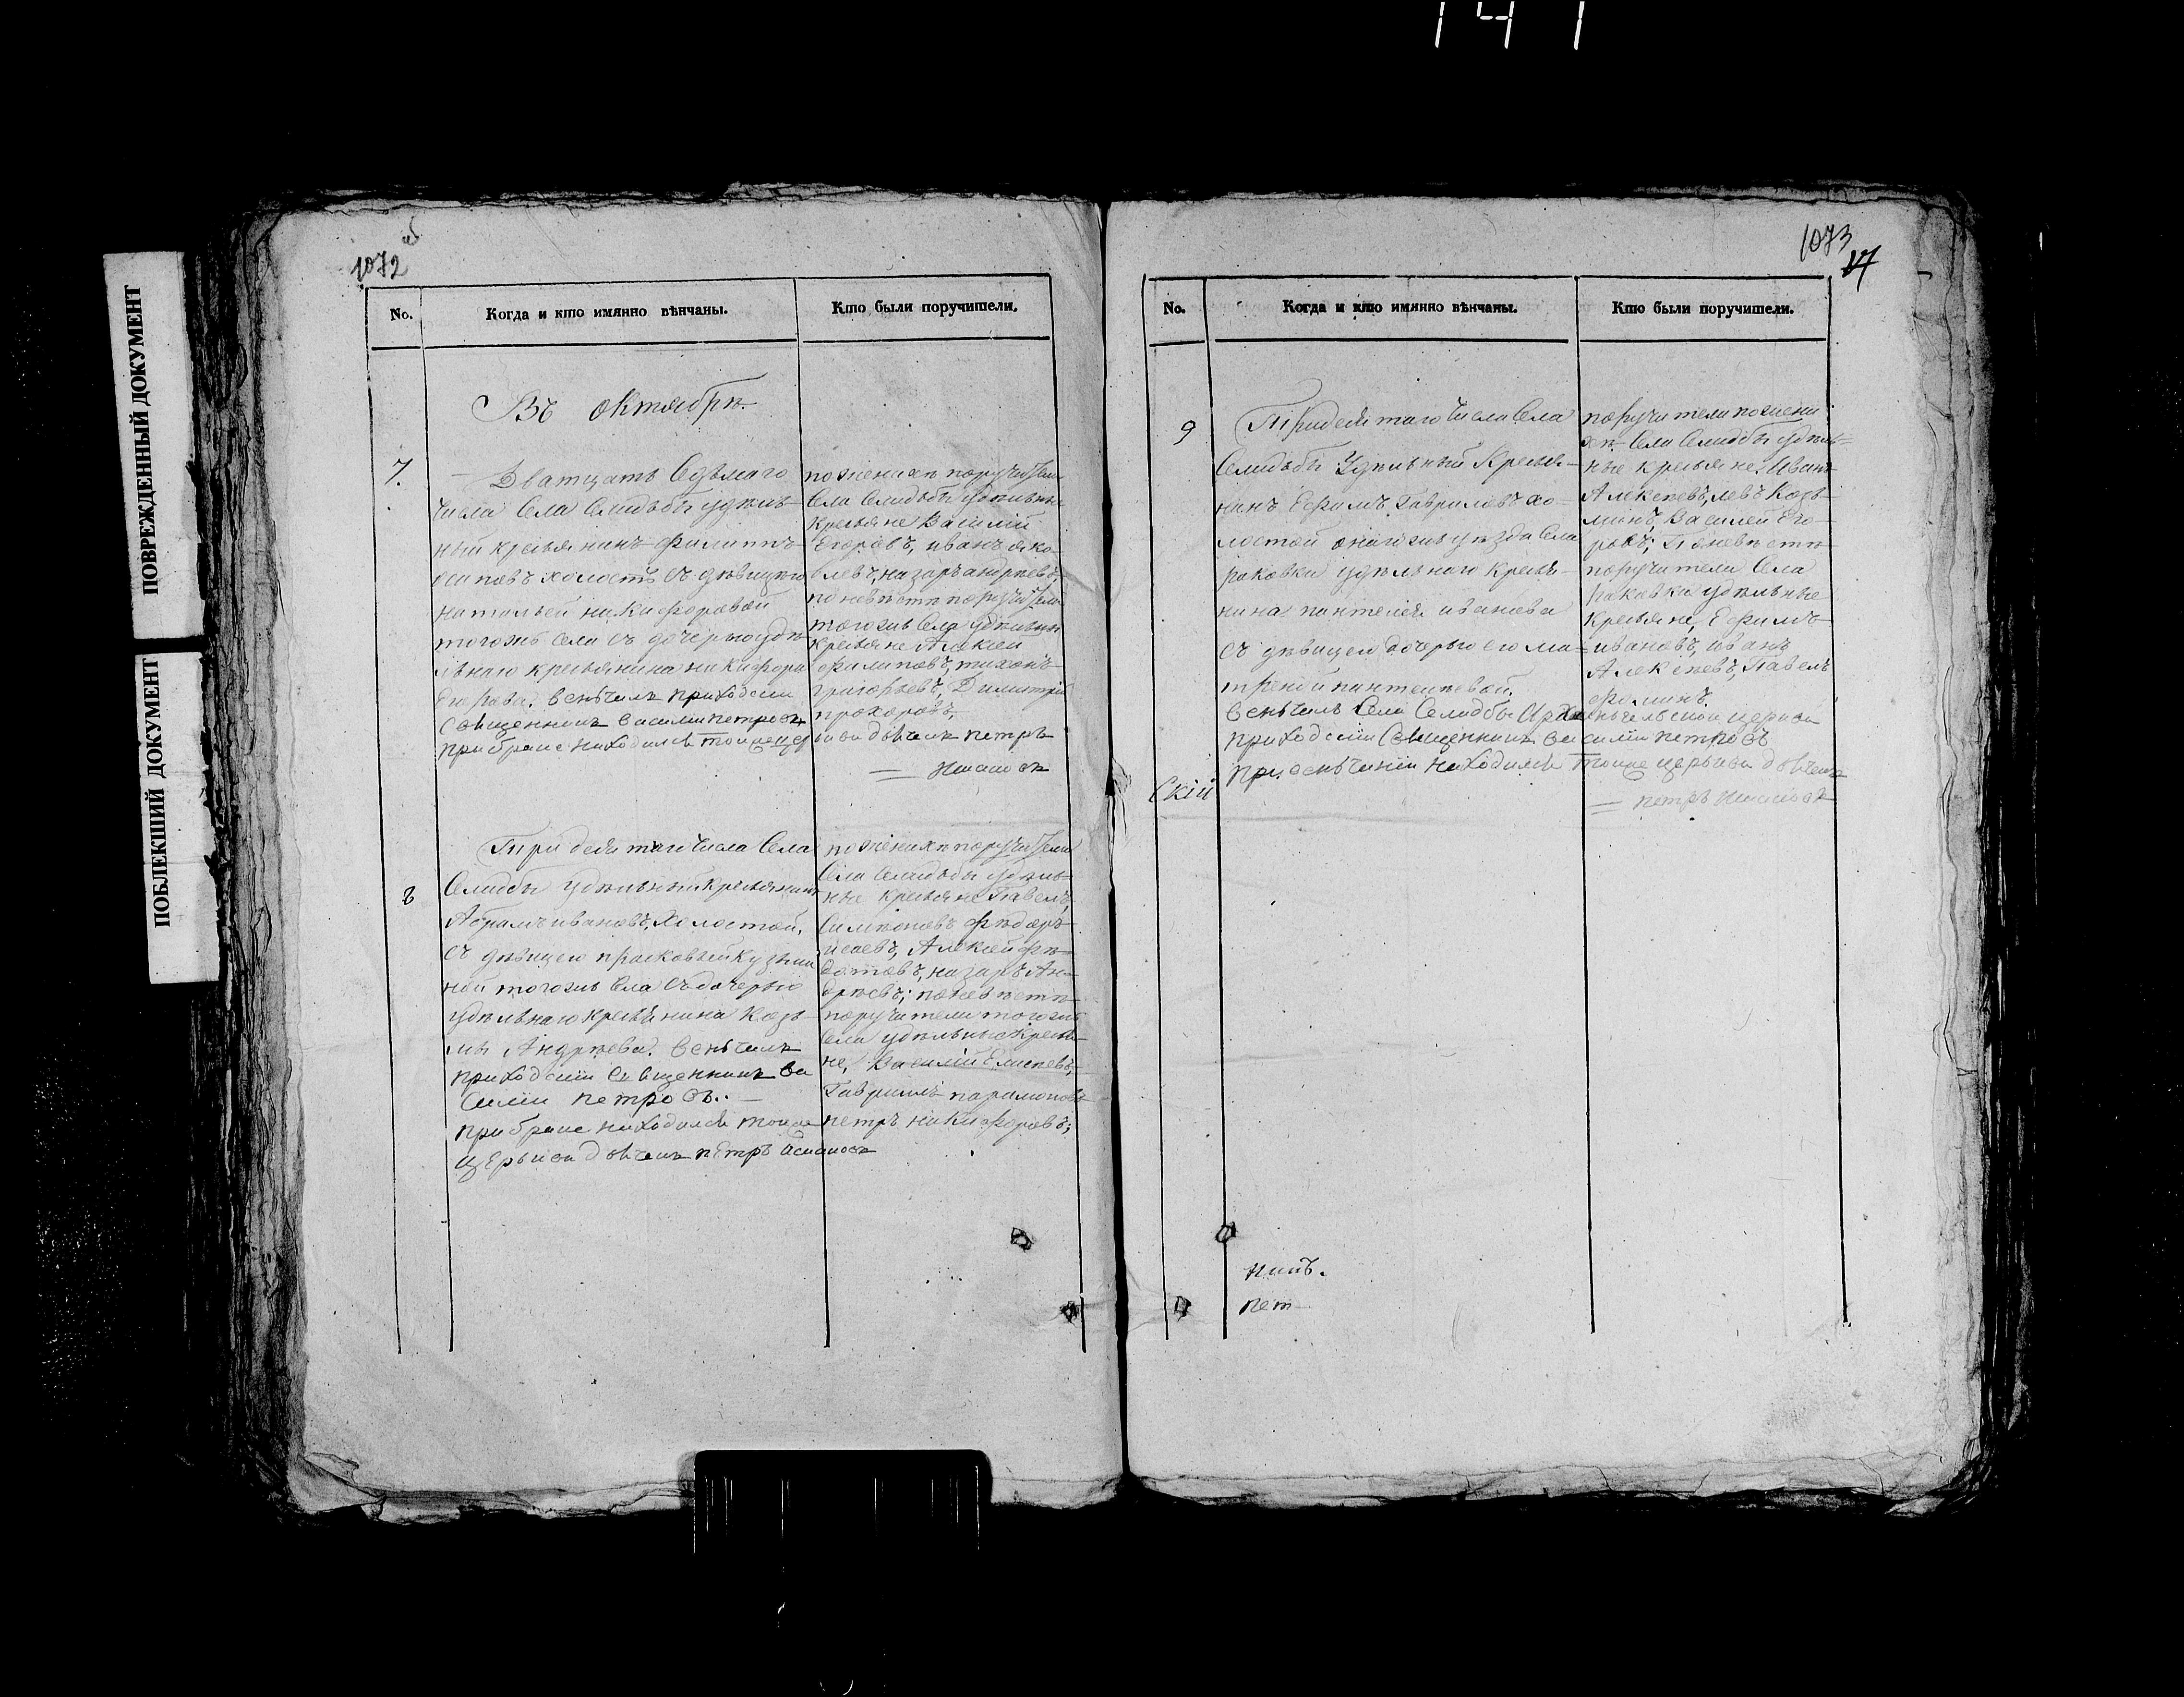 141
ПОВРЕЖДЕННЫЙ ДОКУМЕНТ
ПОБЛЕКШИЙ ДОКУМЕНТ
1072
No.
Когда и кто имянно вѣнчаны.
Кто были поручители.
Въ октябрѣ.
7.
Дватцать Седьмаго
числа Села Селидьбы удѣль-
ный крестьянинъ Филиппъ
осиповъ холостъ съ дѣвицею
натальей никифоровой
тогожъ села съ дочерью удѣ-
льнаго крестьянина никифора
Егорова. венчалъ приходскии
Священникъ василии петровъ
при браке находился тоиже цер
по женихѣ поручители
Села Селидьбы удѣльные
крестьяне Василій
Егоровъ, иванъ яко-
влевъ, назаръ андрѣевъ,
по невѣстѣ поручители
тогожъ Села удѣльныя
крестьяне Алексѣй
филиповъ, тихонъ
григорьевъ, Димитрій
прохоровъ,
кви дьячекъ петръ
8
Тридесятаго числа Села
Селидбы удѣльный крестьянинъ
Абрамъ ивановъ, Холостой,
съ дѣвицею прасковьей Кузьми
ной тогожъ Села съ дочерью
удѣльнаго крестьянина Козь-
мы Андрѣева. венчалъ
приходскии Священникъ ва
силии петровъ.
при браке находился тоиже
церькви дьячекъ петръ
по женихѣ поручители
Села Селидьбы удѣль-
ные крестьяне Павелъ
Симіоновъ Фѣдоръ
исаевъ, Алексѣй фѣ-
дотовъ, назаръ Ан-
дрѣевъ; по невѣстѣ
поручители тогожъ
Села удѣльные крестья-
не, Василій Елисѣевъ,
Гаврилъ парамоновъ
петръ никифоровъ;
1073
17
No.
Когда и кто имянно вѣнчаны.
Кто были поручители.
9
Тридесятаго числа Села
Селидьбы Удѣльный Крестья-
нинъ Ефимъ Гавриловъ хо-
лостой онагожъ уѣзда Села
раковки удѣльнаго крестья-
нина пантелея иванова
съ дѣвицею дочерью его ма-
треной пантелѣевой.
венчалъ Села Селидбы Архангельской церкви
приходскии Священникъ василии петровъ
при венчании находился тоиже церькви дьячекъ
петръ
поручители по жени
хѣ Села Селидбы удѣль-
ные крестьяне, Иванъ
Алексѣевъ, левъ Козь-
минъ, Василей Его-
ровъ; По невѣстѣ
поручители Села
раковки удѣльные
крестьяне, Ефимъ
ивановъ, иванъ
Алексѣевъ, Павелъ
фоминъ.
Скій
нинъ.
пет